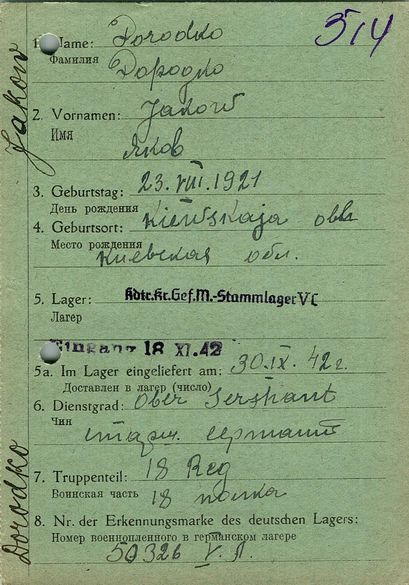 514
1. Name: Dorodko
Фамилия Дородко
2. Vornamen: Jakow
Имя Яков
3. Geburtstag: 23.VIII.1921
День рождения
4. Geburtsort: Kiewskaja obl
Место рождения Киевская обл.
5. Lager: Kdtr.Kr.Gef.M.-Stammlager V C
Лагер
Eingang 18 XI. 42
5a. Im Lager eingeliefert am: 30.IX.42г.
Доставлен в лагер (число)
6. Dienstgrad: Ober Serzhant
Чин старш. сержант
7. Truppenteil: 18 Reg
Воинская часть 18 полка
8. Nr. der Erkennungsmarke des deutschen Lagers:
Номер военнопленного в германском лагере
50326 V. A.
Jakow
Dorodko